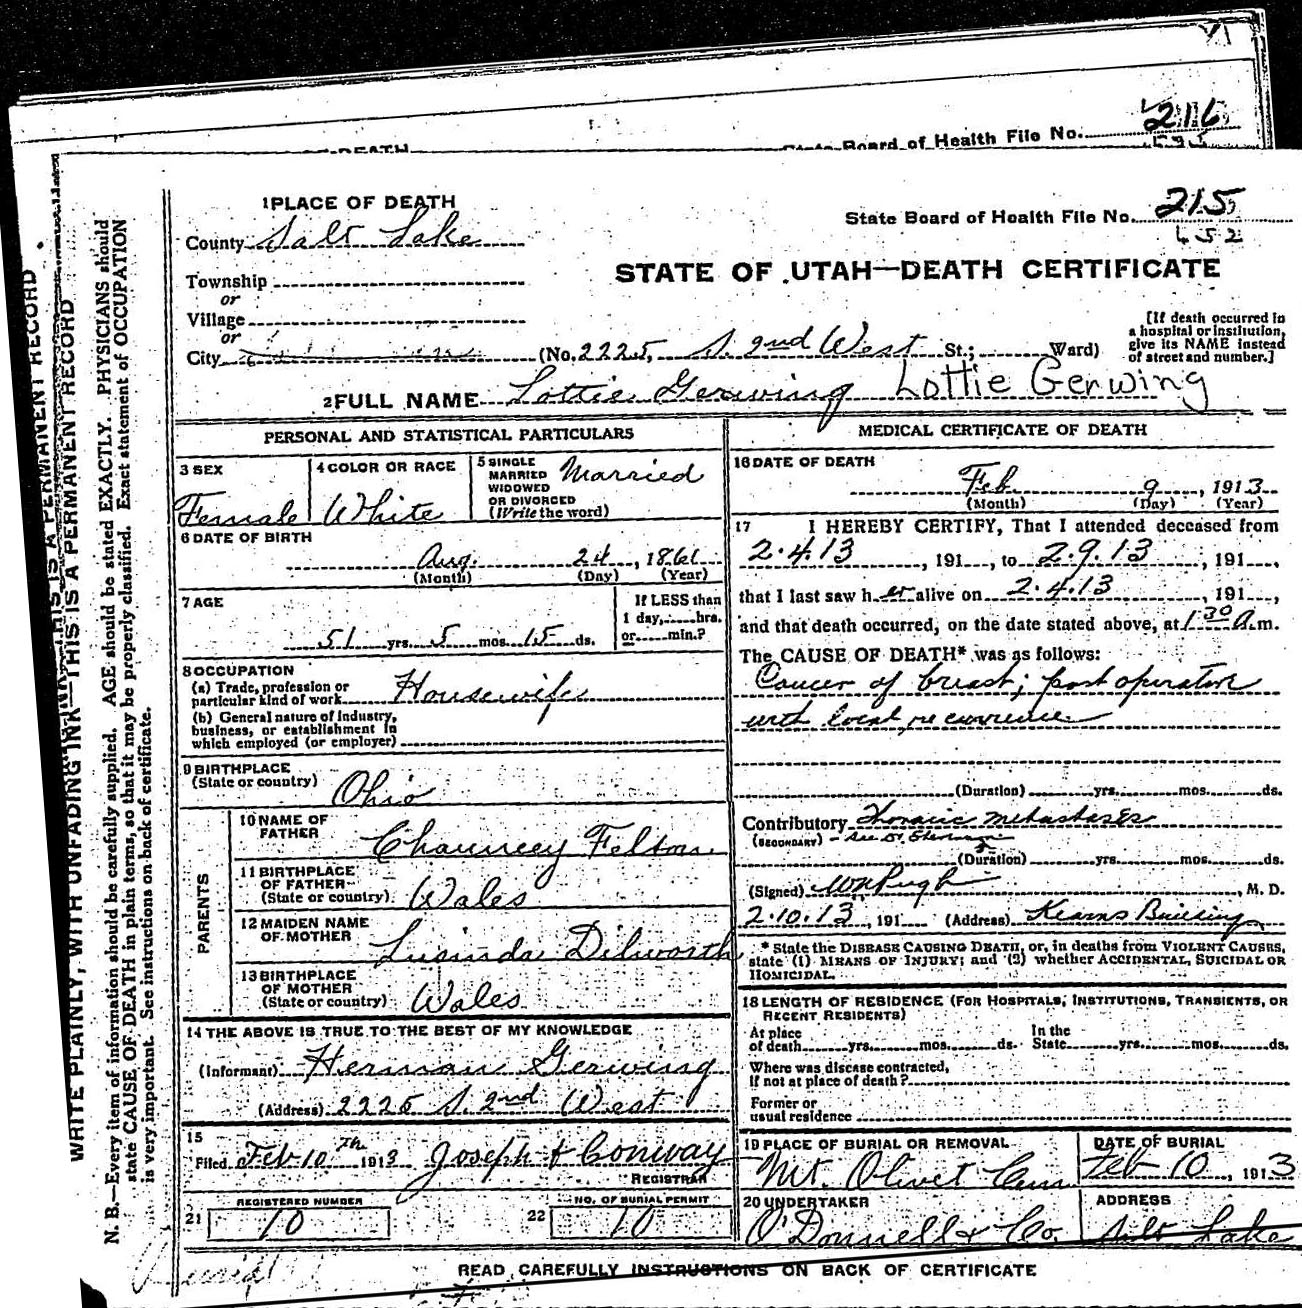 216
State Board of Health File No.
OF DEATH
WRITE PLAINLY, WITH UNFADING INK—THIS IS A PERMANENT RECORD
N. B.—Every item of information should be carefully supplied. AGE should be stated EXACTLY. PHYSICIANS should
state CAUSE OF DEATH in plain terms, so that it may be properly classified. Exact statement of OCCUPATION
is very important. See instructions on back of certificate.
1 PLACE OF DEATH
County Salt Lake
Township
or
Village
or
City
State Board of Health File No. 215
452
STATE OF UTAH—DEATH CERTIFICATE
(No. 2225, S. 2nd West St.; Ward)
[If death occurred in
a hospital or institution,
give its NAME instead
of street and number.]
2 FULL NAME Lottie Gerwing Lottie Gerwing
PERSONAL AND STATISTICAL PARTICULARS
3 SEX
Female
4 COLOR OR RACE
White
5 SINGLE
MARRIED
WIDOWED
OR DIVORCED
(Write the word)
Married
6 DATE OF BIRTH
Aug. 24, 1861
(Month) (Day) (Year)
7 AGE
51 yrs. 5 mos. 15 ds.
If LESS than
1 day, hrs.
or min.?
8 OCCUPATION
(a) Trade, profession or
particular kind of work Housewife
(b) General nature of industry,
business, or establishment in
which employed (or employer)
9 BIRTHPLACE
(State or country)
Ohio
PARENTS
10 NAME OF
FATHER
Chauncey Felton
11 BIRTHPLACE
OF FATHER
(State or country) Wales
12 MAIDEN NAME
OF MOTHER
Lusinda Dilworth
13 BIRTHPLACE
OF MOTHER
(State or country) Wales
14 THE ABOVE IS TRUE TO THE BEST OF MY KNOWLEDGE
(Informant) Herman Gerwing
(Address) 2225 S. 2nd West
15
Filed Feb 10th 1913 Joseph H Conway
REGISTRAR
REGISTERED NUMBER
21 10
NO. OF BURIAL PERMIT
22 10
MEDICAL CERTIFICATE OF DEATH
16 DATE OF DEATH
Feb. 9, 1913
(Month) (Day) (Year)
17 I HEREBY CERTIFY, That I attended deceased from
2.4.13, 191 , to 2.9.13, 191 ,
that I last saw her alive on 2.4.13, 191 ,
and that death occurred, on the date stated above, at 1 30 A.m.
The CAUSE OF DEATH* was as follows:
Cancer of breast; post operation
with local recurrence
(Duration) yrs. mos. ds.
Contributory Thoracic metastases
(SECONDARY)
(Duration) yrs. mos. ds.
(Signed) WR Pugh, M. D.
2.10.13, 191 (Address) Kearns Building
* State the DISEASE CAUSING DEATH, or, in deaths from VIOLENT CAUSES,
state (1) MEANS OF INJURY; and (2) whether ACCIDENTAL, SUICIDAL OR
HOMICIDAL.
18 LENGTH OF RESIDENCE (FOR HOSPITALS, INSTITUTIONS, TRANSIENTS, OR
RECENT RESIDENTS)
At place
of death yrs. mos. ds.
In the
State yrs. mos. ds.
Where was disease contracted,
if not at place of death?
Former or
usual residence
19 PLACE OF BURIAL OR REMOVAL
Mt. Olivet Cem
DATE OF BURIAL
Feb 10, 1913
20 UNDERTAKER
O'Donnell & Co.
ADDRESS
Salt Lake
READ CAREFULLY INSTRUCTIONS ON BACK OF CERTIFICATE